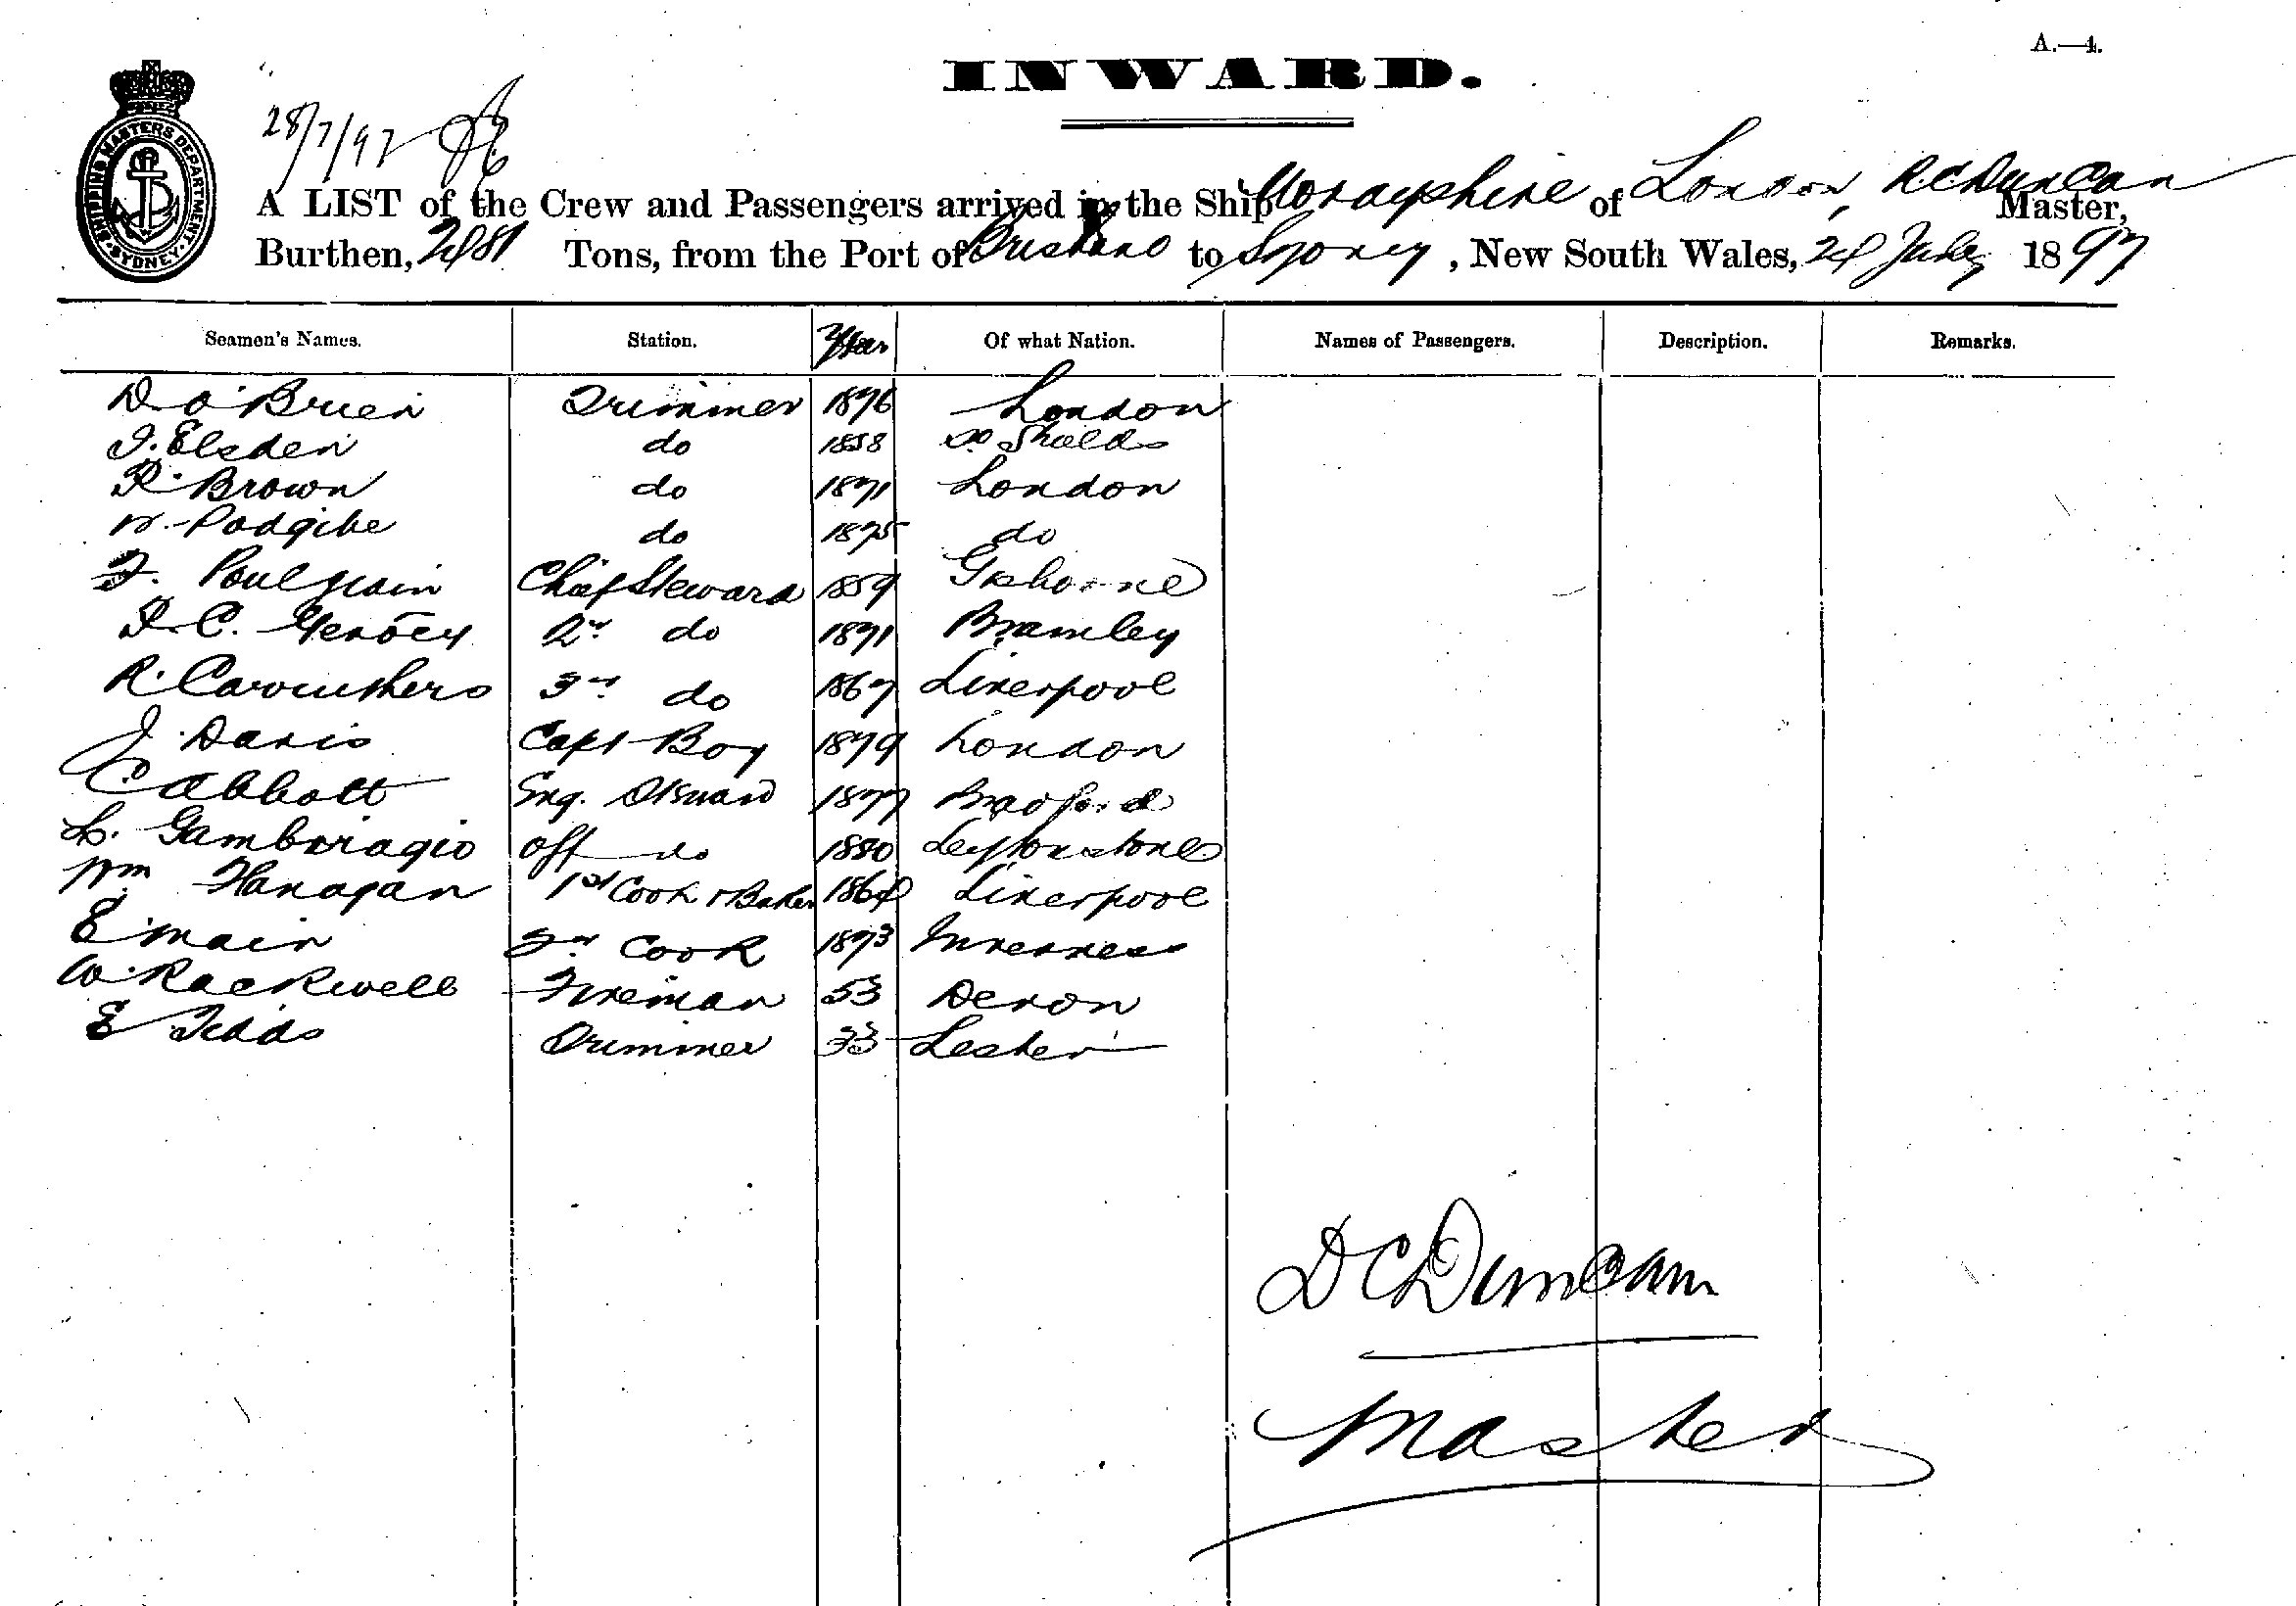 A.—4.
INWARD.
28/7/97
SHIPPING MASTERS DEPARTMENT. SYDNEY.
A LIST of the Crew and Passengers arrived in the Ship Morayshire of London, Duncan Master,
Burthen, 2481 Tons, from the Port of Brisbane to Sydney, New South Wales, 24 July 1897
Seamen's Names. Station. Year Of what Nation. Names of Passengers. Description. Remarks.
D. O'Brien Trimmer 1876 London
J. Elsden do 1858 So Shields
R. Brown do 1871 London
W. Podgibe do 1875 do
F. Poulgrain Chief Steward 1859 Gisborne
2nd do 1871 Bramley
R. Carruthers 3rd do 1867 Liverpool
J. Davis Capt Boy 1879 London
C Abbott Eng. Steward 1877 Bradford
L. Gamboragio Off do 1880 Leytonstone
Wm Flanagan 1st Cook & Baker 1864 Liverpool
E Main 2nd Cook 1873 Inverness
W. Rackwell Fireman 53 Devon
E Tedds Trimmer 33 Lester
D C Duncan
Master